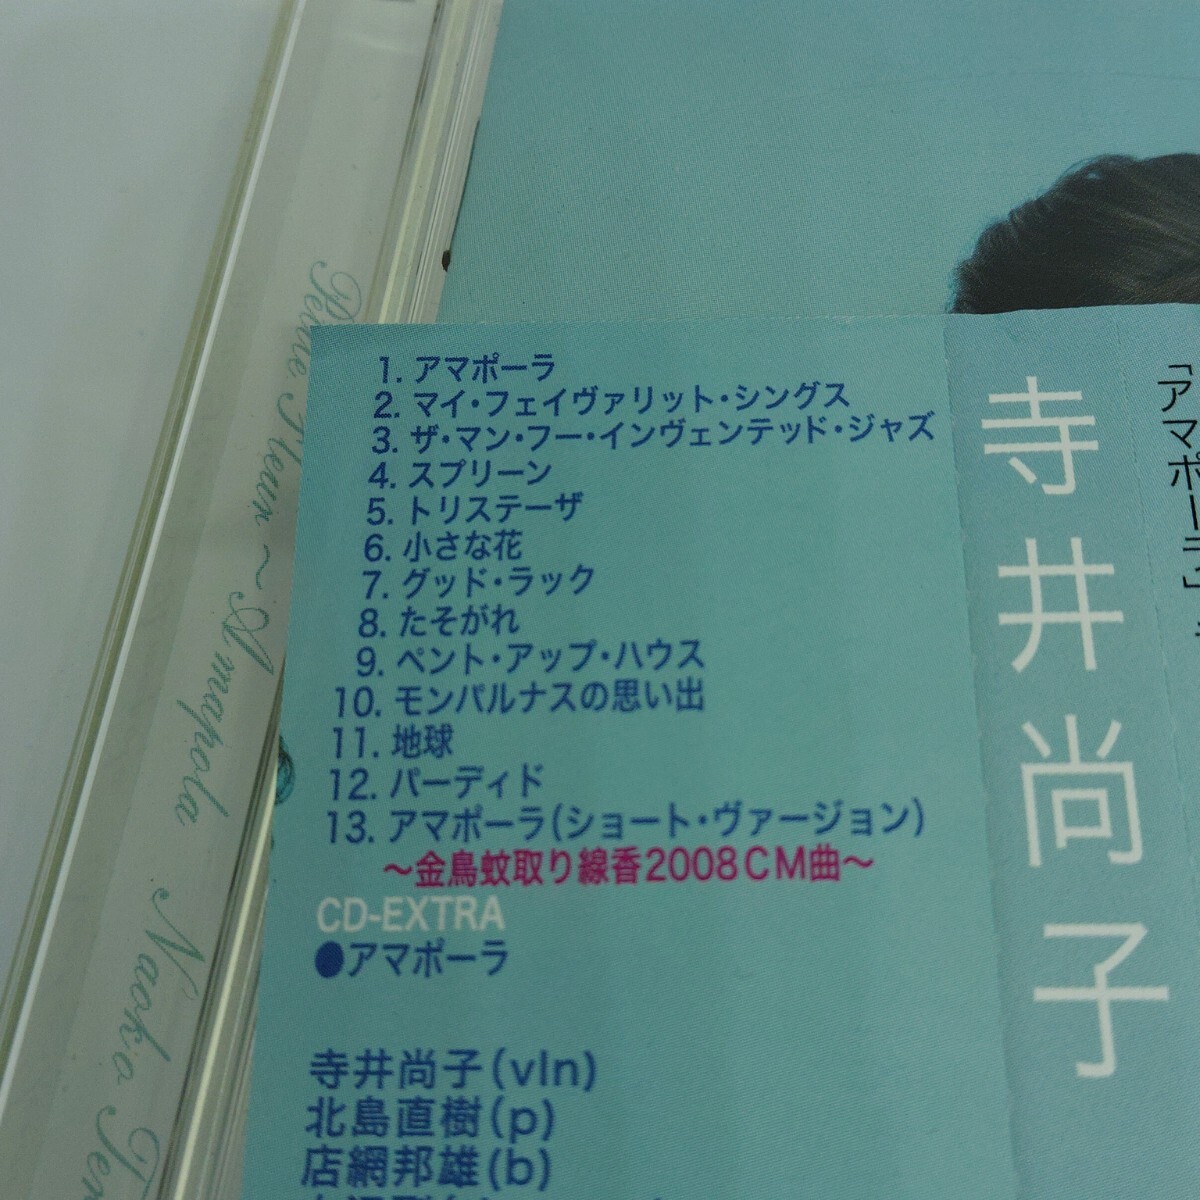 1. アマポーラ
2. マイ・フェイヴァリット・シングス
3. ザ・マン・フー・インヴェンテッド・ジャズ
4. スプリーン
5. トリステーザ
6. 小さな花
7. グッド・ラック
8. たそがれ
9. ペント・アップ・ハウス
10. モンパルナスの思い出
11. 地球
12. パーディド
13. アマポーラ(ショート・ヴァージョン)
～金鳥蚊取り線香2008CM曲～
CD-EXTRA
●アマポーラ
寺井尚子(vln)
北島直樹(p)
店網邦雄(b)
寺井尚子
「アマポーラ」
Petite Fleur ~ Amapola Naoko